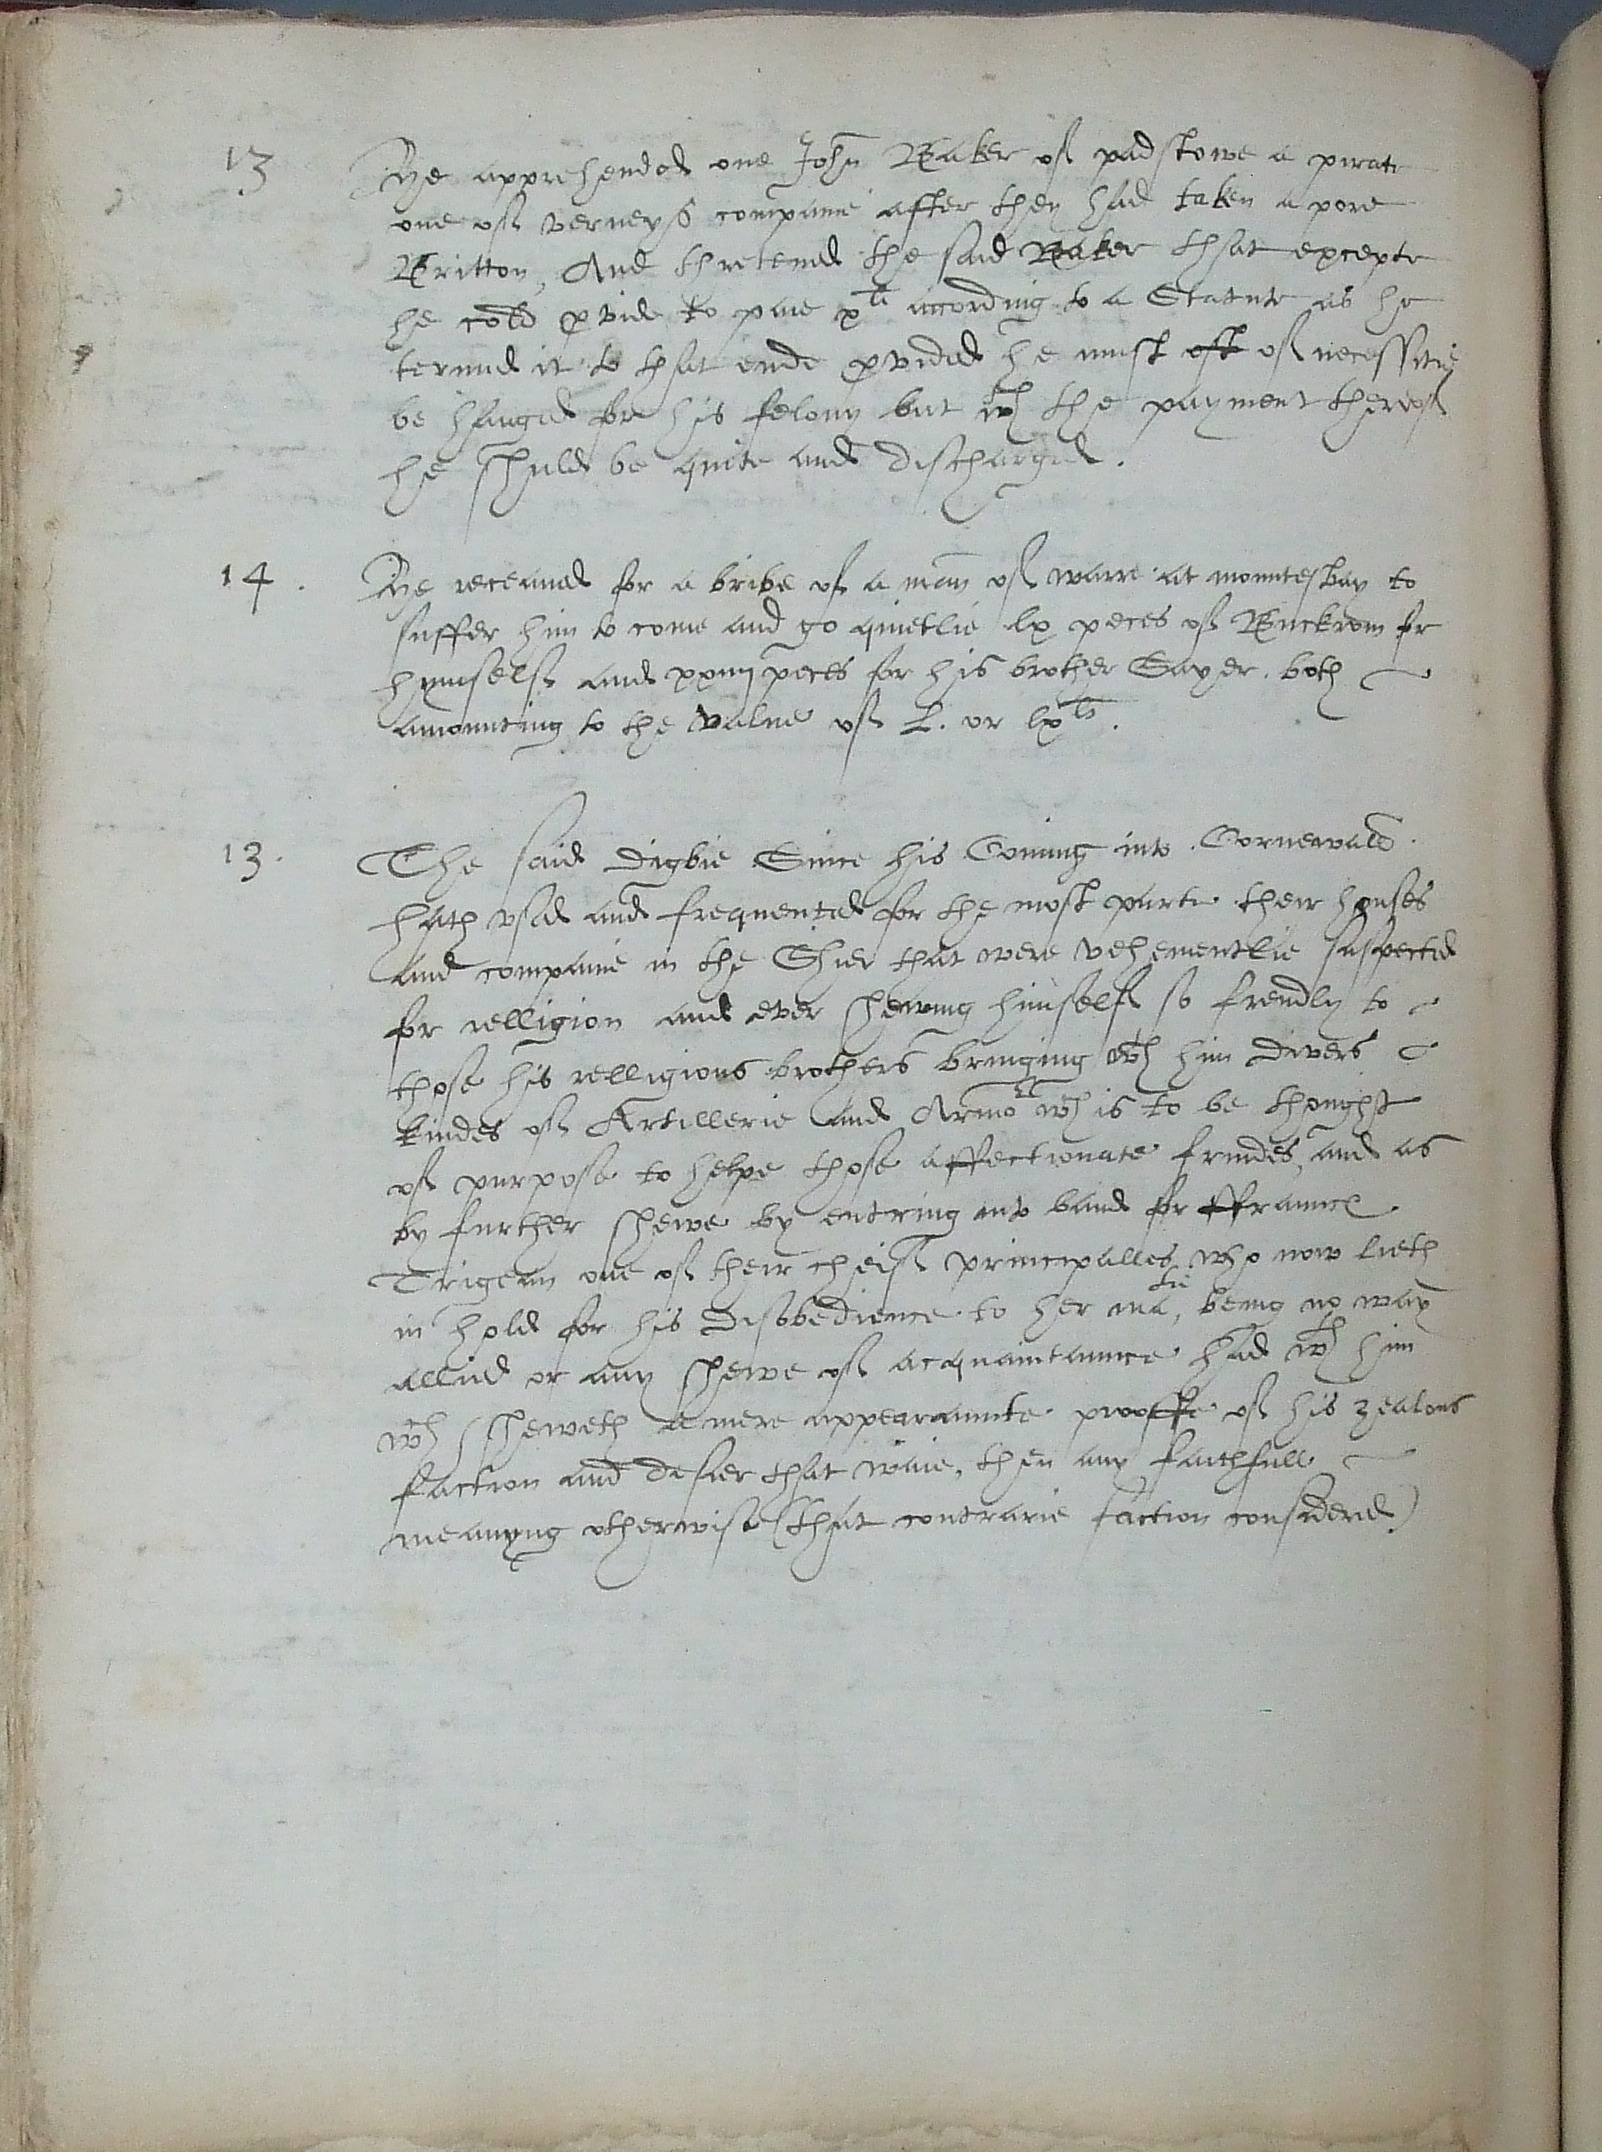 13 He apprehended one John Baker of padstowe a pirate
one of verneys companie after they had taken a pore
Britton, And thretened the said Baker that excepte
he cold pvide to paie xli according to a Statute as he
termed it to that ende pvided he must oft of necessitie
be hanged for his felony but wth the payment therof
he shuld be quite and discharged.
14. He receaued for a bribe of a man of warre at mountesbay to
suffer him to come and go quietlie lx peces of Buckrom for
hymself and xxiiij peces for his brother Sayer. both
amounting to the value of L. or lxli.
13. The said digbie Since his Coming into Cornewald
hath vsed and frequented for the most parte their houses
and companie in the Shier that were vehementlie suspected
for relligion and ever shewing himself so frendly to
those his relligious brothers bringing wth him divers
kindes of Artillerie and Armor wch is to be thought
of purpose to helpe those affectionate frindes, and as
by further shewe by entring into band for ffraunces
Trigean one of their cheif principalles who now lieth
in hold for his disobedience to her matie, being no way
allied or any shewe of acquaintaunce had wth him
wch sheweth a mere appearaunte prooffe of his zealous
faction and desier that waie, then any faithfull
meanyng otherwise (that contrarie faction considered)